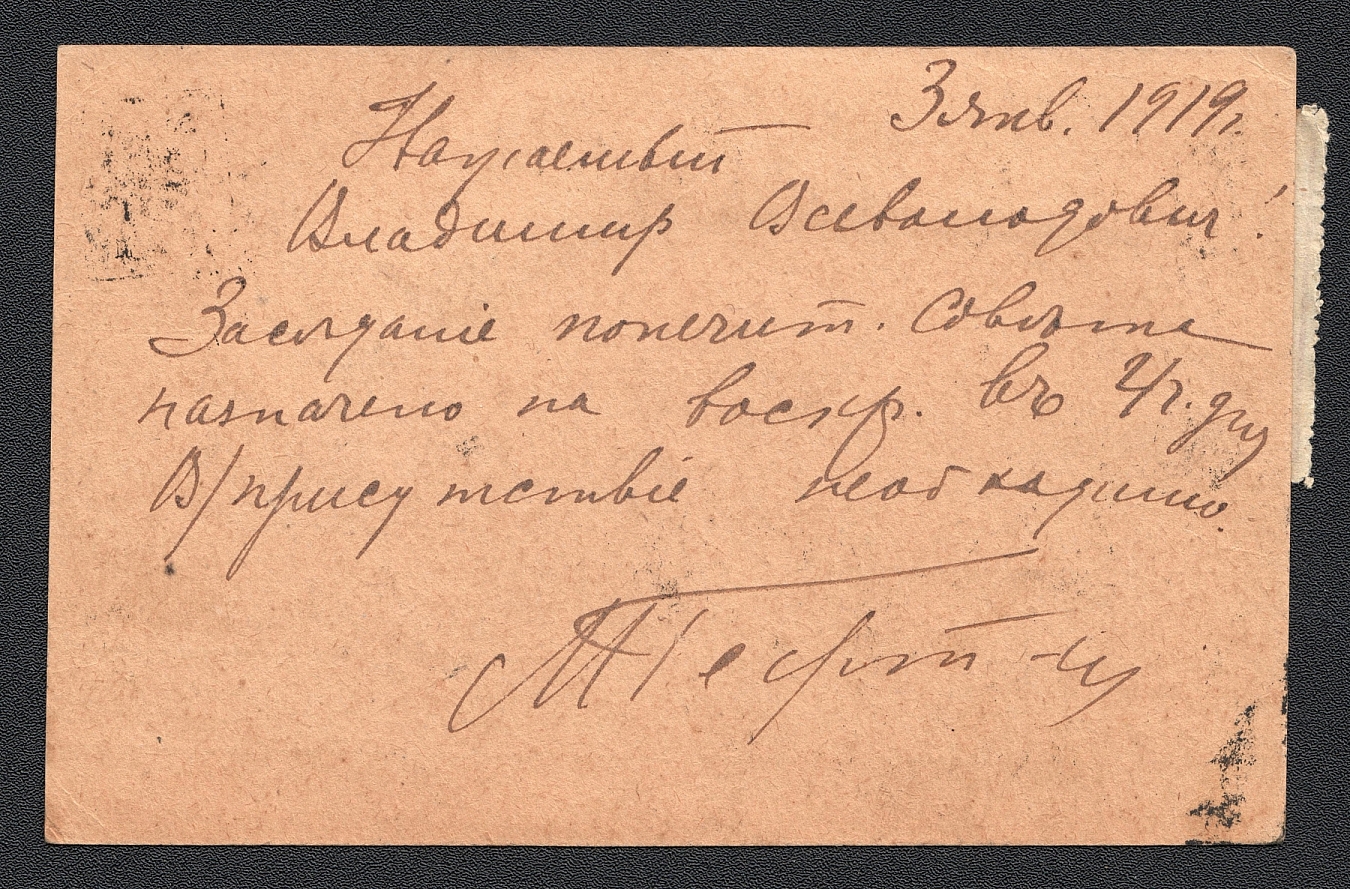 3 янв. 1919 г.
Владимир Всеволодович!
Засѣданіе попечит. Совѣта
назначено на воскр. въ 2 ч. дня
В/присутствіе необходимо.